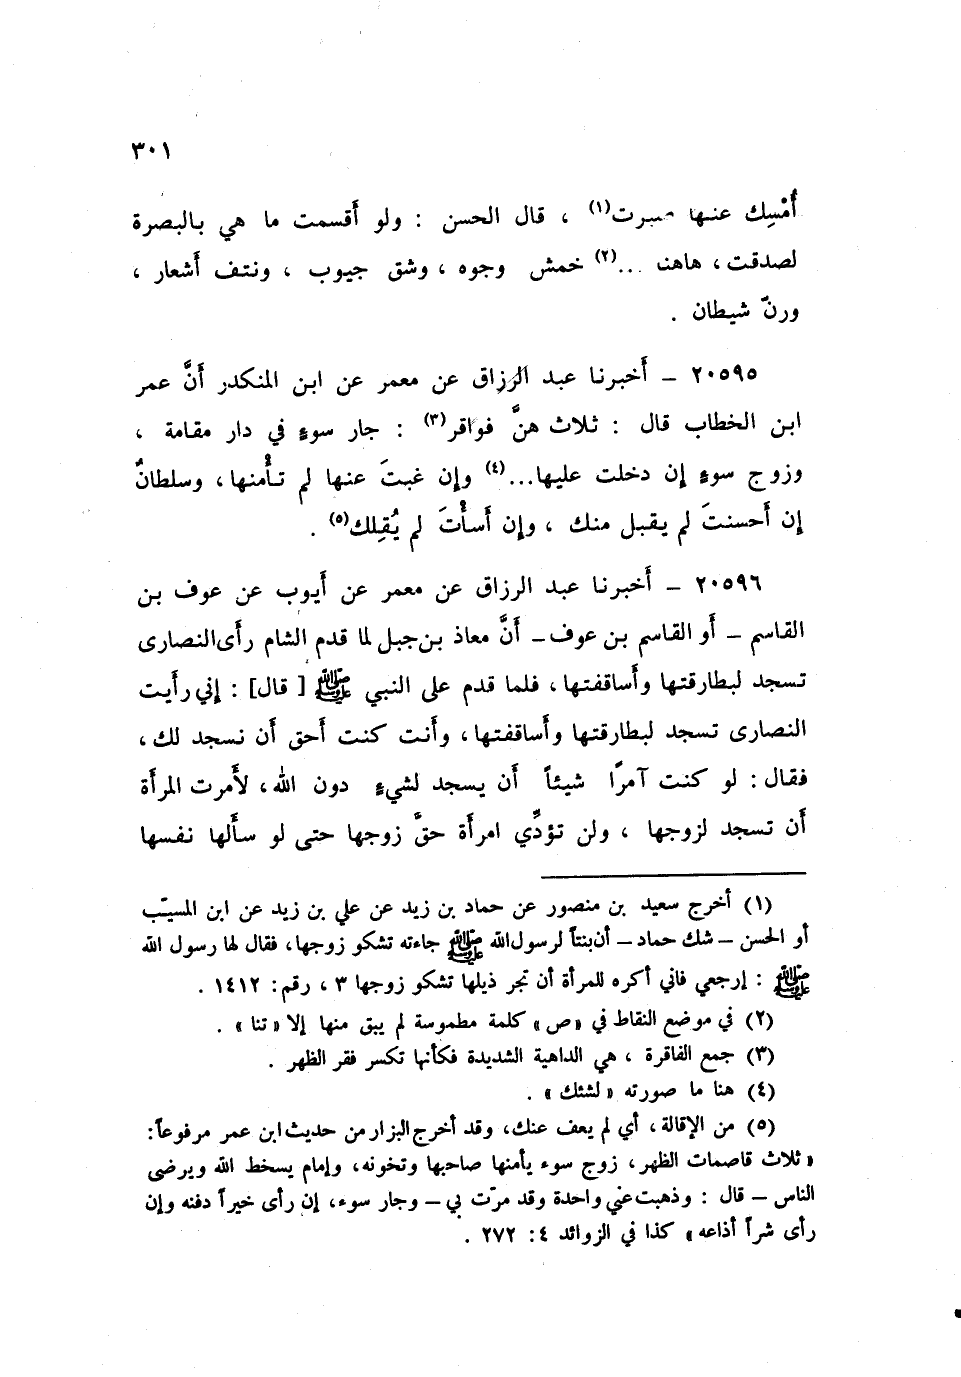 ٣٠١
أُمْسِك عنها صبرت(١) ، قال الحسن : ولو أَقسمت ما هي بالبصرة
لصدقت ، هاهنـ ...(٢) خمش وجوه ، وشق جيوب ، ونتف أَشعار ،
ورنّ شيطان .
٢٠٥٩٥ - أَخبرنا عبد الرزاق عن معمر عن ابن المنكدر أَنَّ عمر
ابن الخطاب قال : ثلاث هنَّ فواقر(٣) : جار سوءٍ في دار مقامة ،
وزوج سوءٍ إن دخلت عليها...(٤) وإن غبتَ عنها لم تأْمنها ، وسلطانٌ
إن أَحسنتَ لم يقبل منك ، وإن أَسأْتَ لم يُقِلك(٥) .
٢٠٥٩٦ - أَخبرنا عبد الرزاق عن معمر عن أَيوب عن عوف بن
القاسم - أَو القاسم بن عوف - أَنَّ معاذ بن جبل لما قدم الشام رأَى النصارى
تسجد لبطارقتها وأَساقفتها ، فلما قدم على النبي ﷺ [ قال] : إني رأَيت
النصارى تسجد لبطارقتها وأَساقفتها ، وأَنت كنت أَحق أَن نسجد لك ،
فقال : لو كنت آمرًا شيئاً أَن يسجد لشيءٍ دون الله ، لأَمرت المرأَة
أَن تسجد لزوجها ، ولن تؤدِّي امرأَة حقَّ زوجها حتى لو سأَلها نفسها
(١) أخرج سعيد بن منصور عن حماد بن زيد عن علي بن زيد عن ابن المسيّب
أو الحسن - شك حماد - أن بنتاً لرسول الله ﷺ جاءته تشكو زوجها ، فقال لها رسول الله
ﷺ : إرجعي فاني أكره للمرأة أن تجر ذيلها تشكو زوجها ٣ ، رقم : ١٤١٢ .
(٢) في موضع النقاط في «ص» كلمة مطموسة لم يبق منها إلا «تنا» .
(٣) جمع الفاقرة ، هي الداهية الشديدة فكأنها تكسر فقر الظهر .
(٤) هنا ما صورته «لشئك» .
(٥) من الإقالة ، أي لم يعف عنك ، وقد أخرج البزار من حديث ابن عمر مرفوعاً :
«ثلاث قاصمات الظهر ، زوج سوء يأمنها صاحبها وتخونه ، وإمام يسخط الله ويرضى
الناس - قال : وذهبت عني واحدة وقد مرّت بي - وجار سوء ، إن رأى خيراً دفنه وإن
رأى شراً أذاعه» كذا في الزوائد ٤ : ٢٧٢ .